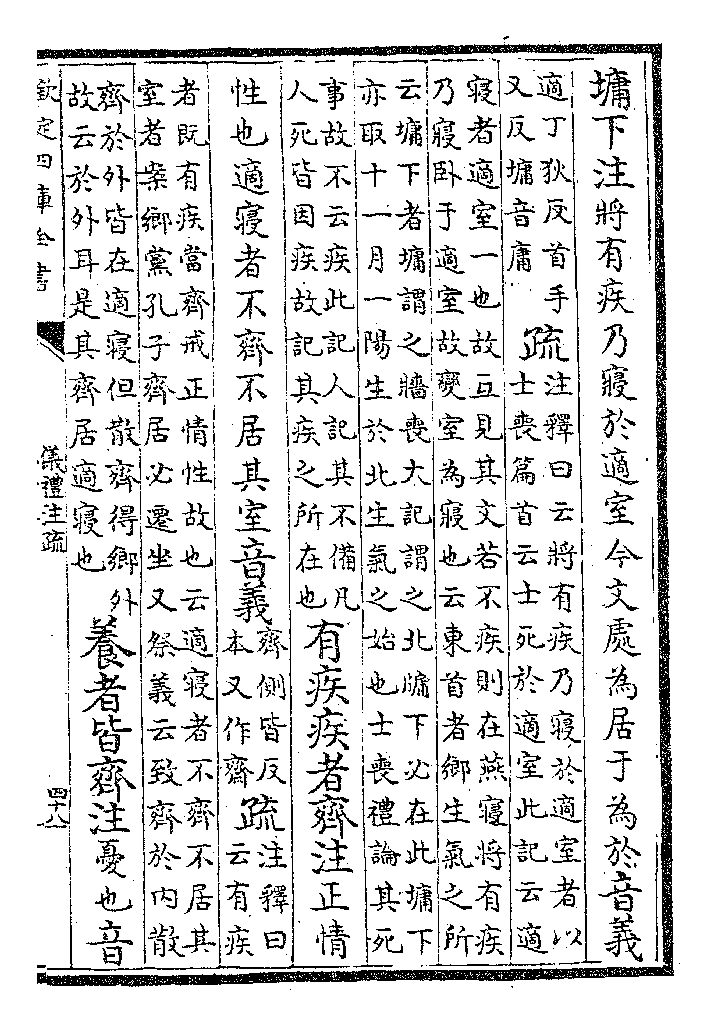 墉下注將有疾乃寢於適室今文處為居于為於音義
適丁狄反首手
又反墉音庸
疏
注釋曰云將有疾乃寢於適室者以
士喪篇首云士死於適室此記云適
寢者適室一也故互見其文若不疾則在燕寢將有疾
乃寢卧于適室故變室為寢也云東首者鄉生氣之所
云墉下者墉謂之牆喪大記謂之北牖下必在此墉下
亦取十一月一陽生於北生氣之始也士喪禮論其死
事故不云疾此記人記其不備凡
人死皆因疾故記其疾之所在也
有疾疾者齊注正情
性也適寢者不齊不居其室音義
齊側皆反
本又作齋
疏
注釋曰
云有疾
者既有疾當齊戒正情性故也云適寢者不齊不居其
室者案鄉黨孔子齊居必遷坐又祭義云致齊於内散
齊於外皆在適寢但散齊得鄉外
故云於外耳是其齊居適寢也
養者皆齊注憂也音
欽定四庫全書
儀禮注疏
四十八